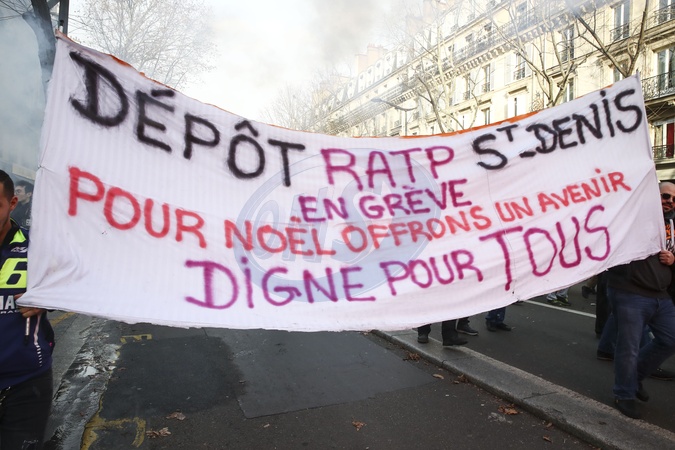 DÉPÔT RATP ST-DENIS
EN GRÈVE
POUR NOËL OFFRONS UN AVENIR
DIGNE POUR TOUS